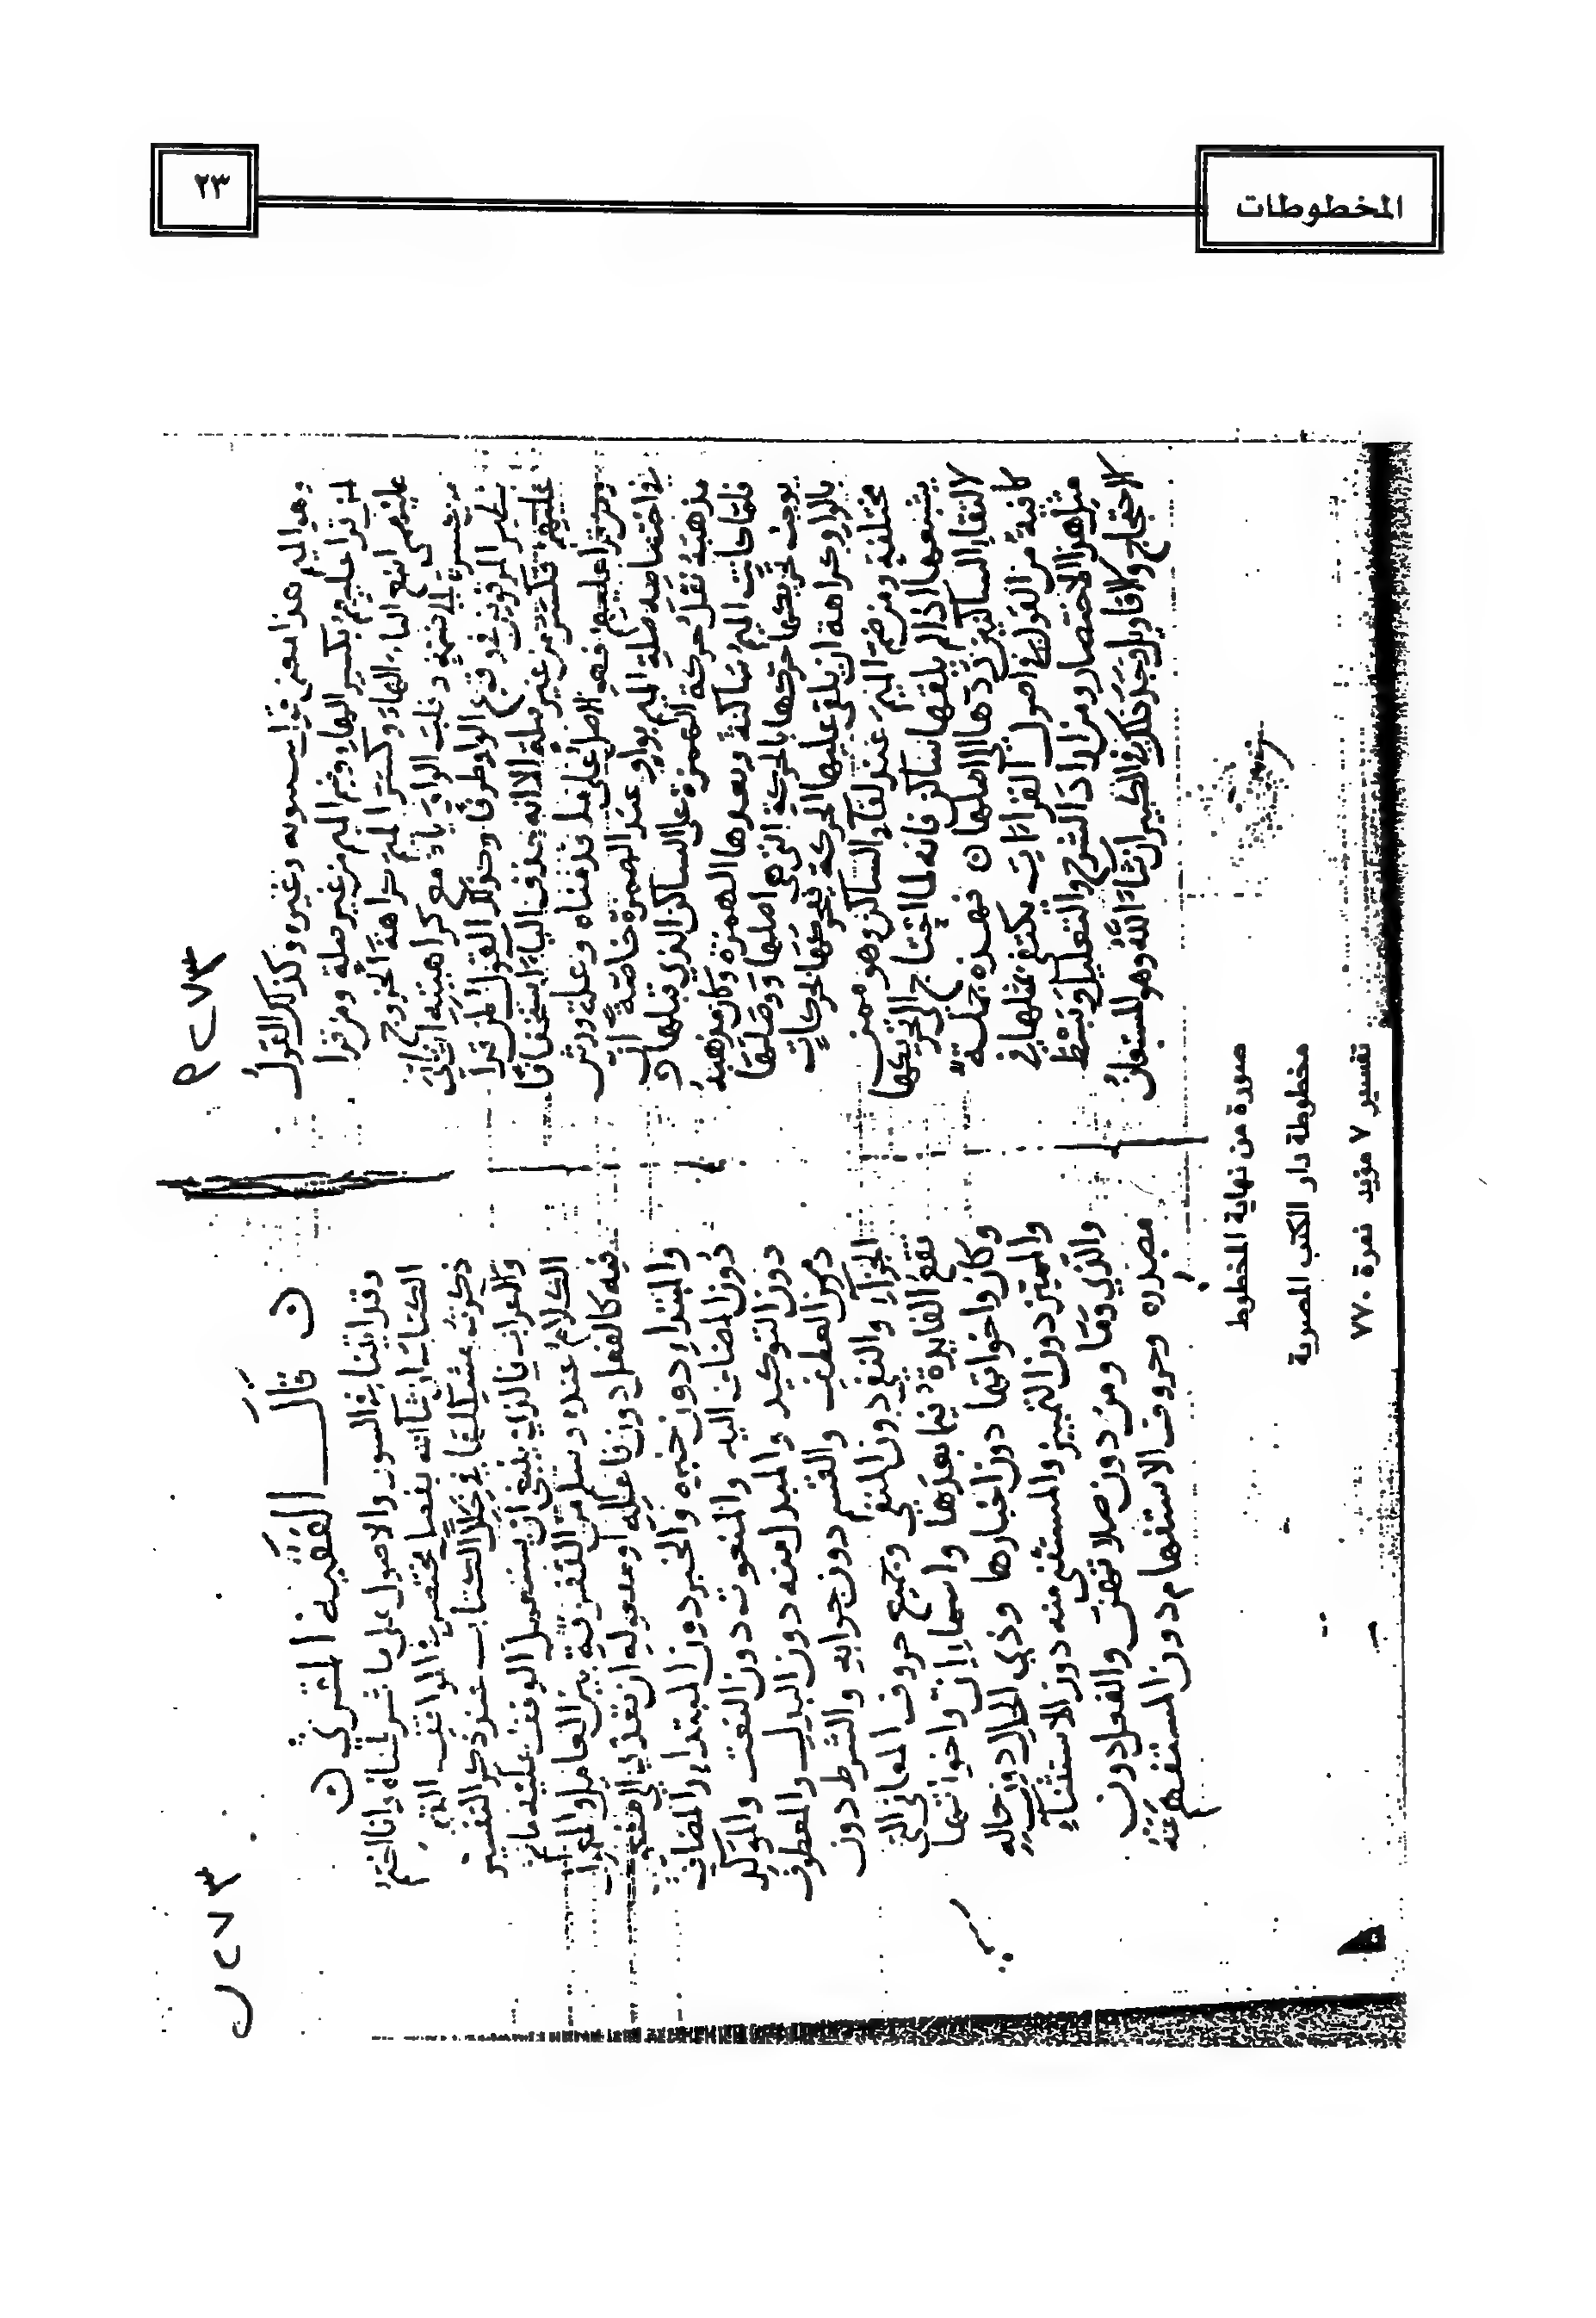 المخطوطات
٢٣
٢٧٣
وهو الميم هذا معنى قول سيبويه وغيره وكذلك القول
لمن قرا عليهم بكسر الهاء وضم الميم من غير صلة ومن قرا
عليهمي اتبع الياء الهاء وكسر الميم كراهة الخروج
من كسرة الى ضمة وقلبت الواو ياء مع
وقوع الواو طرفا وكذلك القول لمن قرا
عليهم فكسر من غير صلة الا انه حذف الياء استخفافا
ومن قرا عليهم فهو الاصل على ما قدمناه وعلة ورش
في اختصاصه صلة الميم بواو عند الهمزة خاصة ان
مذهبه نقل حركة الهمزة على الساكن الذي قبلها
فلما كانت الميم ساكنة وبعدها الهمزة وكان مذهبه
يوجب تحريكها حركها بالحركة التي هي اصلها ووصلتها
بالواو كراهة ان يلقى عليها الحركة بحركات
مختلفة ومن ضم الميم عند لقاء الساكن وهو ممن
يشبعها اذا لم يلقها ساكن فانه لما احتاج الى تحريكها
لالتقاء الساكنين ردها الى اصلها ن فهذه جملة
كافية من القول في اصول القراات يكتفى بمثلها في
مثل هذا الاختصار ومن اراد الشرح والتعليل وبسط
الاحتجاج والاقاويل في الكبير ان شاء الله وهو المستعان
ن قال الفقيه المشرف ن
وقد اتينا في السور والاصول على ما شرطناه وانا اختم
الكتاب ان شاء الله بفصل مختصر في الوقف
ذكرت مشكلها في الكتاب عند ذكر التفسير
والاعراب فالذي ينبغي ان يستعمل الوقف عليه ما تم
الكلام عنده وسلم من التفرقة بين العامل والمعمول
فيه كالفعل دون فاعله او مفعوله ان تقدم
والمبتدا دون خبره والخبر دون المبتدا والمضاف
دون المضاف اليه والمنعوت دون النعت والموكد
دون التوكيد والمبدل منه دون البدل والمعطوف
دون العطف والقسم دون جوابه والشرط دون
الجزاء والنفي دون المنفي وجميع حروف المعاني التي
تقع الفايدة فيما بعدها واسماء ان واخواتها
وكان واخواتها دون اخبارها وذي الحال دون حاله
والمميز دون التمييز والمستثنى منه دون الاستثناء
والذي وما ومن دون صلاتهن والفعل دون
مصدره وحروف الاستفهام دون المستفهم عنه
صورة من نهاية المخطوط
مخطوطة دار الكتب المصرية
تفسير ٧ مؤيد نمرة ٧٧٠